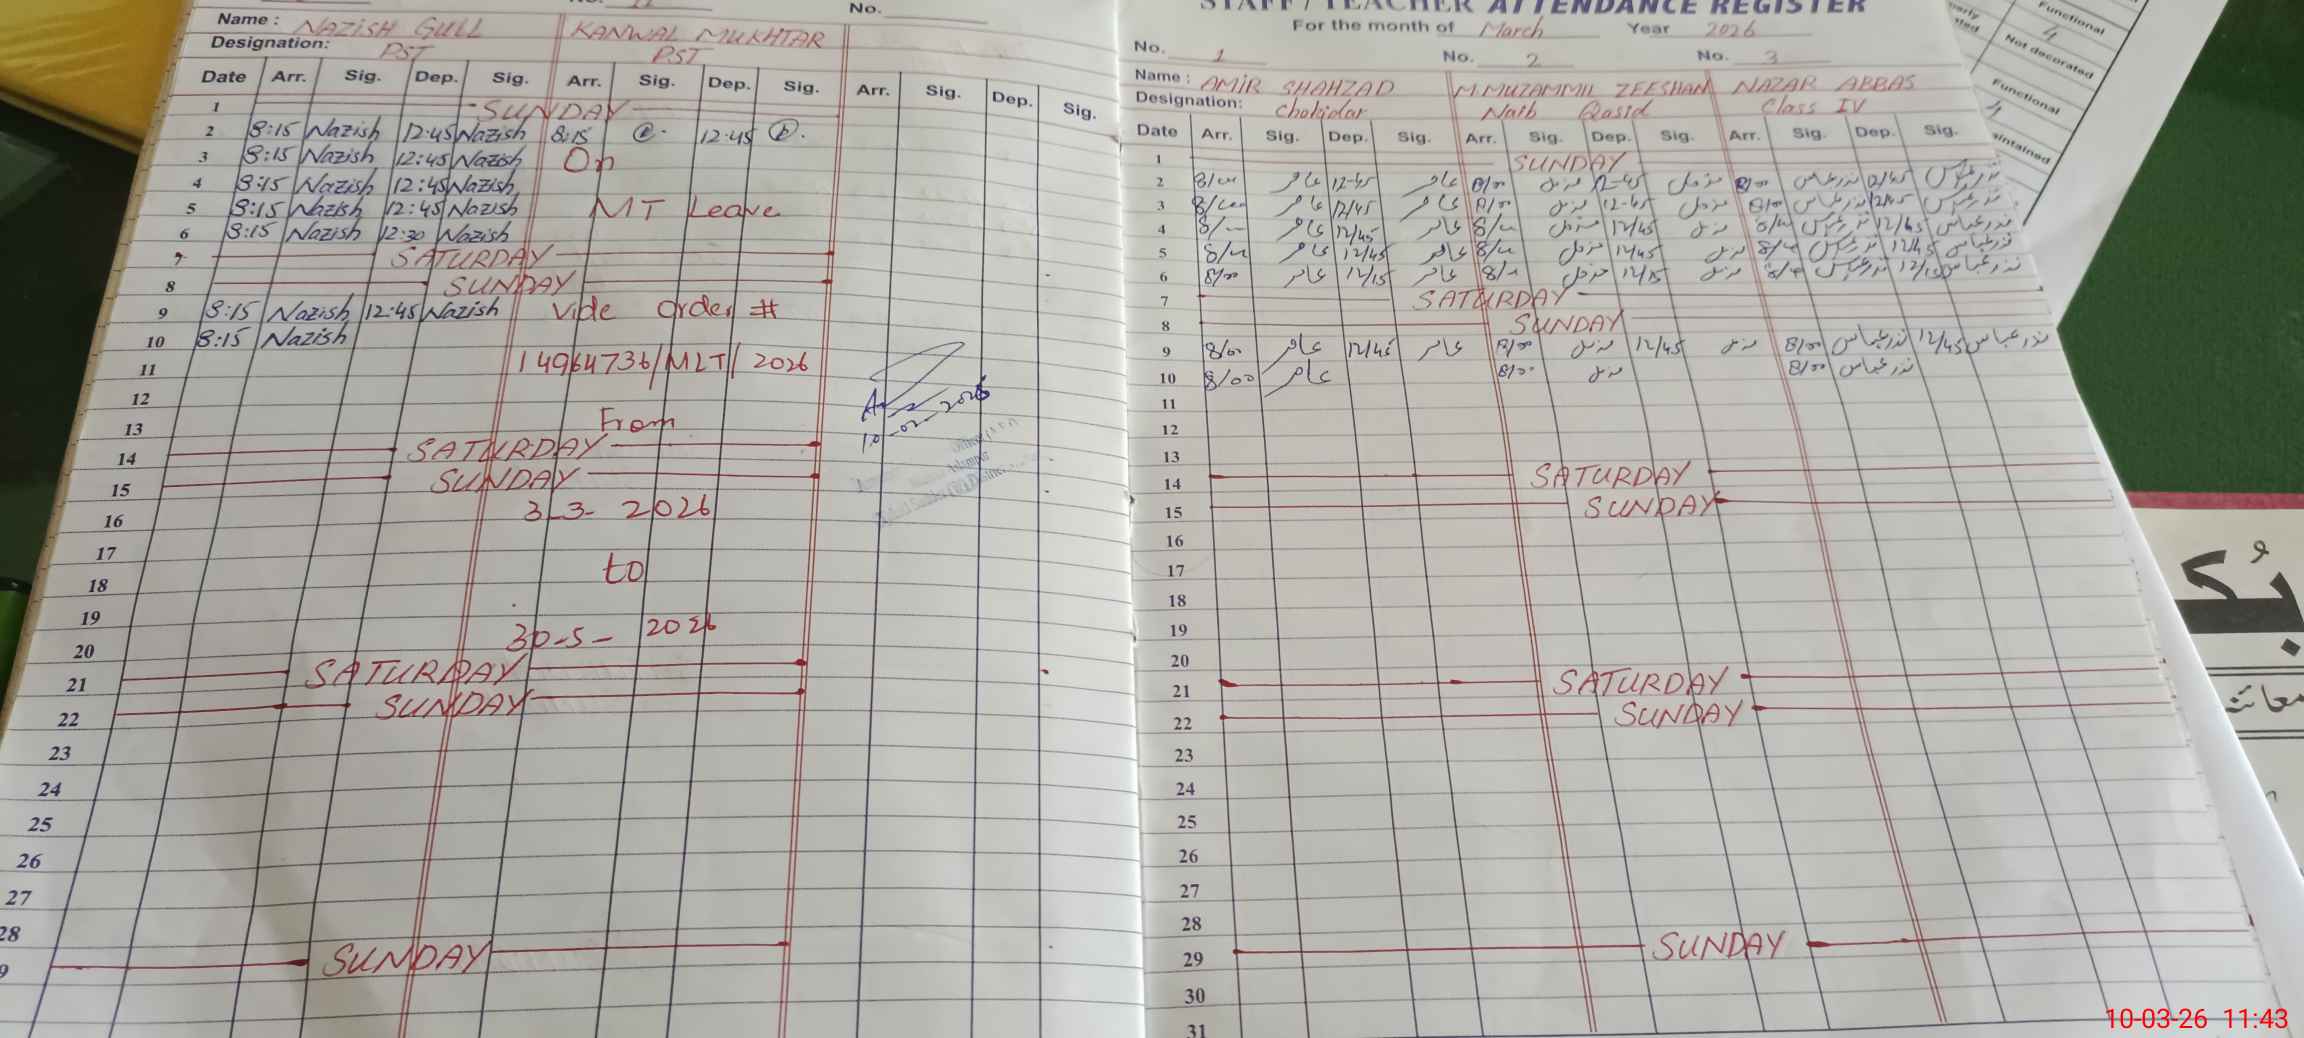 No.
Name : NAZISH GULL KANWAL MUKHTAR
Designation: PST PST
Date Arr. Sig. Dep. Sig. Arr. Sig. Dep. Sig. Arr. Sig. Dep. Sig.
1 SUNDAY
2 8:15 Nazish 12:45 Nazish 8:15 12:45
3 8:15 Nazish 12:45 Nazish On
4 8:15 Nazish 12:45 Nazish
5 8:15 Nazish 12:45 Nazish MT Leave
6 8:15 Nazish 12:30 Nazish
7 SATURDAY
8 SUNDAY
9 8:15 Nazish 12:45 Nazish Vide Order #
10 8:15 Nazish
11 14964736/MLT/2026
12
13 From
14 SATURDAY
15 SUNDAY
16 3-3-2026
17
18 to
19
20 30-5-2026
21 SATURDAY
22 SUNDAY
23
24
25
26
27
28
SUNDAY
STAFF / TEACHER ATTENDANCE REGISTER
For the month of March Year 2026
No. 1 No. 2 No. 3
Name : AMIR SHAHZAD M.MUZAMMIL ZEESHAN NAZAR ABBAS
Designation: Chokidar Naib Qasid Class IV
Date Arr. Sig. Dep. Sig. Arr. Sig. Dep. Sig. Arr. Sig. Dep. Sig.
1 SUNDAY
2 8/00 عامر 12-45 عامر 8/00 مزمل 12-45 مزمل 8/00 نذر عباس 12/45 نذر عباس
3 8/00 عامر 12/45 عامر 8/00 مزمل 12-45 مزمل 8/00 نذر عباس 12/45 نذر عباس
4 عامر 12/45 عامر مزمل 12/45 مزمل نذر عباس 12/45 نذر عباس
5 عامر 12/45 عامر مزمل 12/45 مزمل نذر عباس 12/45 نذر عباس
6 8/00 عامر 12/15 عامر مزمل 12/15 مزمل نذر عباس 12/15 نذر عباس
7 SATURDAY
8 SUNDAY
9 8/00 عامر 12/45 عامر 8/00 مزمل 12/45 مزمل 8/00 نذر عباس 12/45 نذر عباس
10 8/00 عامر 8/00 مزمل 8/00 نذر عباس
11
12
13
14 SATURDAY
15 SUNDAY
16
17
18
19
20
21 SATURDAY
22 SUNDAY
23
24
25
26
27
28
29 SUNDAY
30
31
Functional
4
Not decorated
Functional
4
10-03-26 11:43